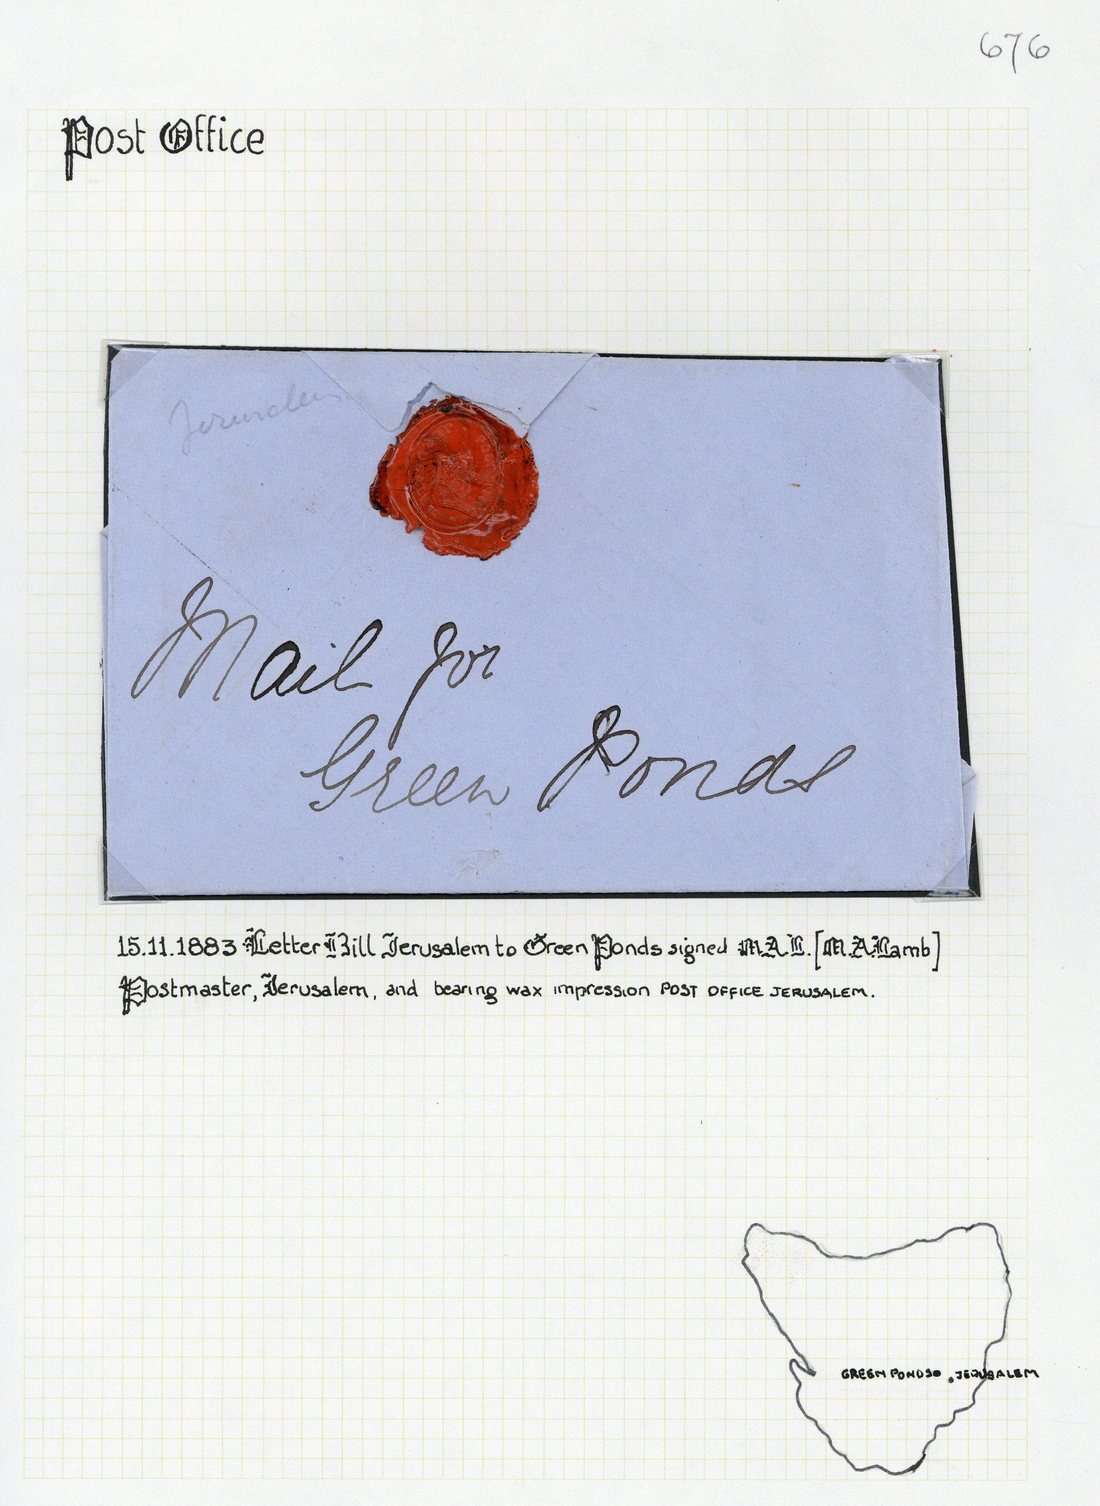 676
Post Office
Jerusalem
Mail for
Green Ponds
15.11.1883 Letter Bill Jerusalem to Green Ponds signed M.A.L. [M.A.Lamb]
Postmaster, Jerusalem, and bearing wax impression POST OFFICE JERUSALEM.
GREEN PONDS JERUSALEM